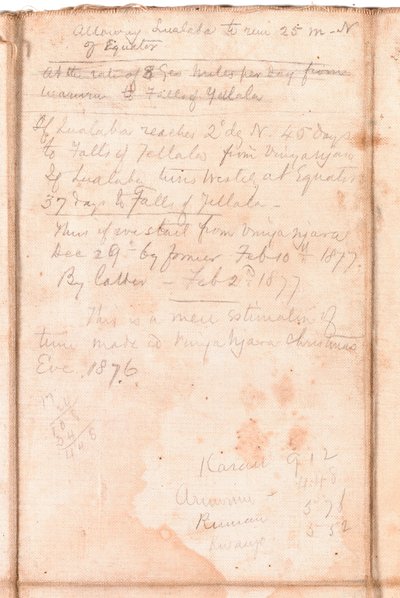 Allowing Lualaba to run 25 m - N
of Equator
At the rate of 8 Geo Miles per day from
to Falls of Yellala
If Lualaba reaches 2° deg N. 45 days
to Falls of Yellala from Vinya Njara
If Lualaba turns Westly at Equator
37 days to Falls of Yellala -
Thus if we start from Vinya Njara
Dec 29th by former Feb 10th 1877.
By latter - Feb 2nd 1877
This is a mere estimation of
time made at Vinya Njara Christmas
Eve. 1876.
17
448
912
448
576
552